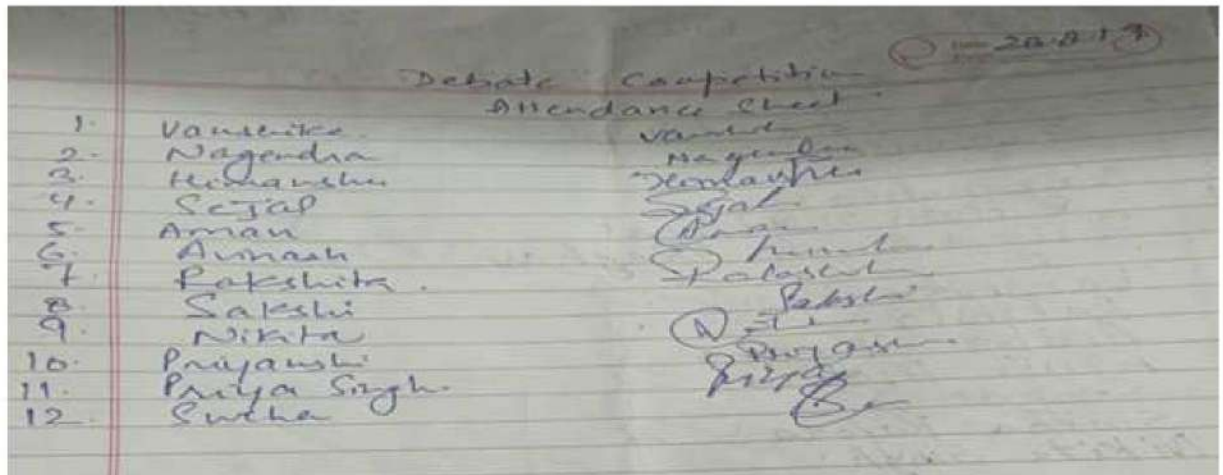 Date 20.8.19
Debate Competition
Attendance Sheet
1. Vanshika.
2. Nagendra Nagendra
3. Himanshu Himanshu
4. Sejal Sejal
5. Aman Aman
6. Avinash
7. Rakshita. Rakshita
8. Sakshi Sakshi
9. Nikita
10. Priyanshi
11. Priya Singh. Priya
12. Sneha